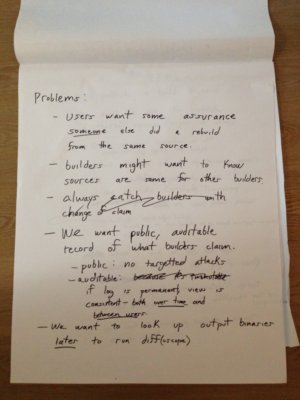 Problems:
- Users want some assurance
someone else did a rebuild
from the same source.
- builders might want to know
sources are same for other builders.
- always catch builders with
change of claim
- We want public, auditable
record of what builders claim.
- public: no targetted attacks
- auditable: because it's
if log is permanent, view is
consistent - both over time and
between users.
- We want to look up output binaries
later to run diff(oscope)